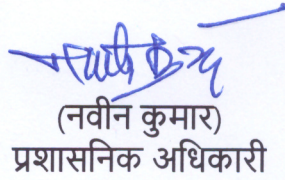 (नवीन कुमार)
प्रशासनिक अधिकारी